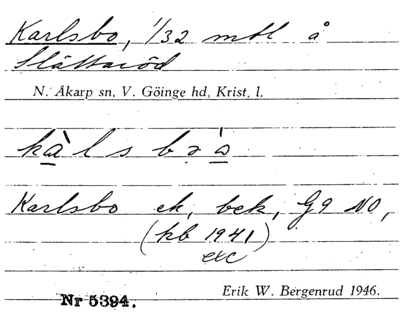 Karlsbo, 1/32 mtl å
Slättaröd
N. Åkarp sn, V. Göinge hd, Krist. l.
kàlsbɔ̀s
Karlsbo ek, bek, G9 NO,
(kb 1941)
exc
Erik W. Bergenrud 1946.
Nr 5394.